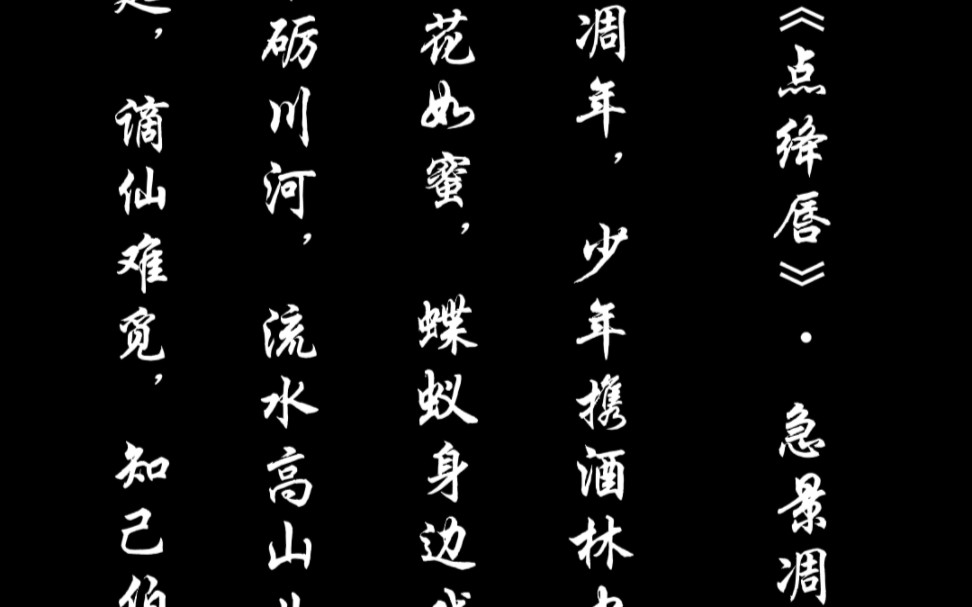 《点绛唇》·急景凋
凋年，少年携酒林
花如蜜，蝶蚁身边
砺川河，流水高山
，谪仙难觅，知己伯